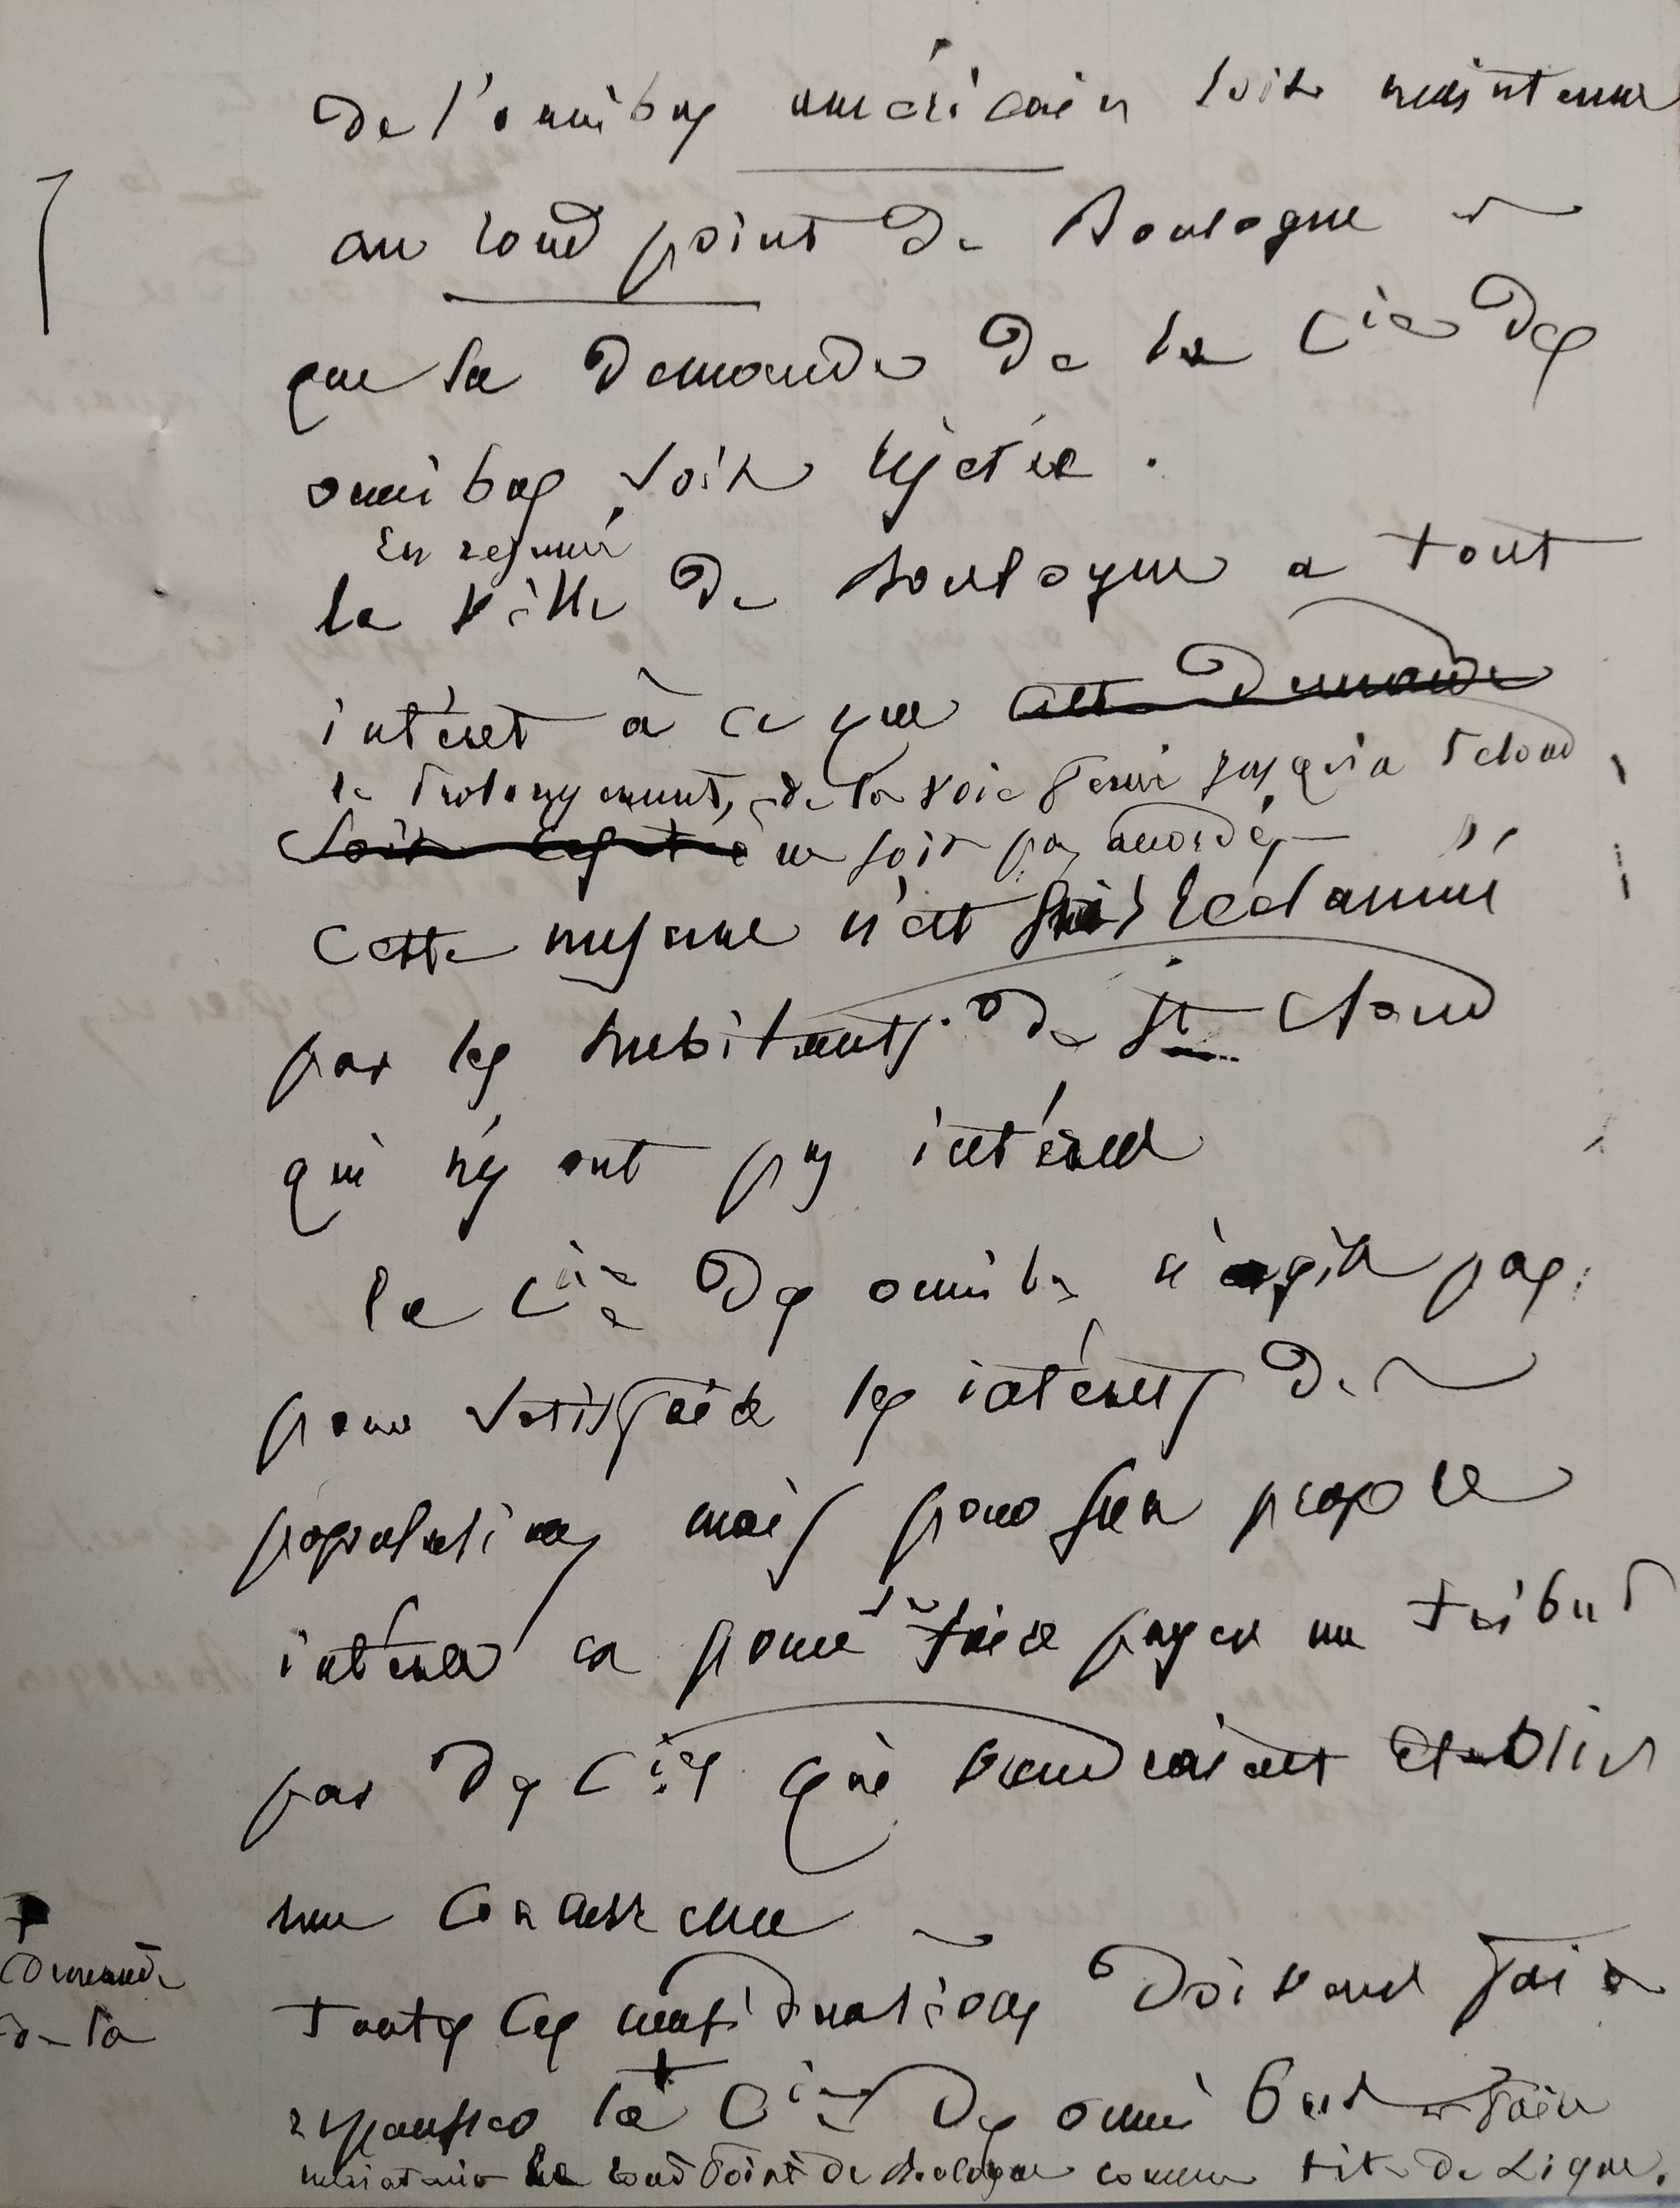 de l'omnibus américain soit maintenu
au rond point de Boulogne et
que la demande de la Cie des
omnibus soit rejetée.
En résumé
la Ville de Boulogne a tout
intérêt à ce que cette demande
le prolongement, de la voie ferrée jusqu'à St cloud
soit rejetée ne soit pas accordé,
Cette mesure n'est pas réclamée
par les habitants de St Cloud
qui n'y ont pas intérêt
la Cie des omnibus n'agit pas
pour satisfaire les intérêts de
populations mais pour son propre
intérêt et pour se faire payer un tribut
par des Cies qui voudraient établir
une
toutes ces considérations doivent faire
repousser la Cie des omnibus et faire
demande
de la
maintenir le rond Point de Boulogne comme tête de Ligne.